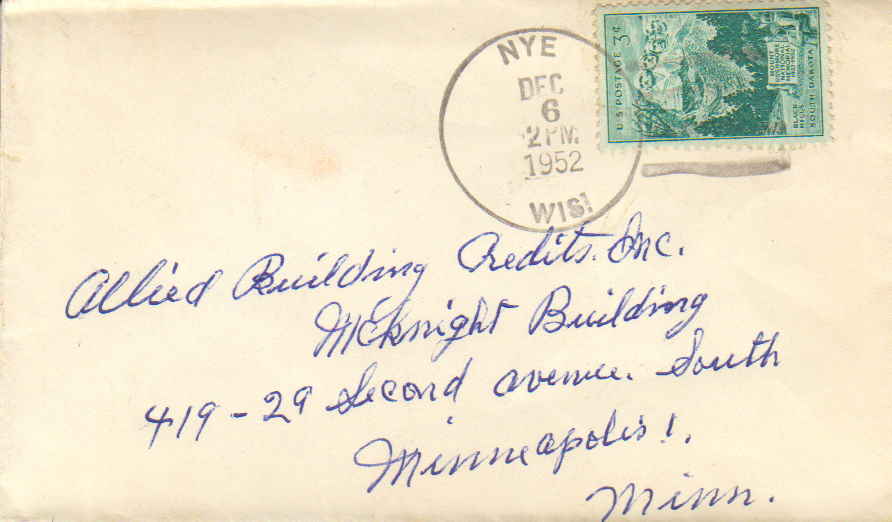 NYE
DEC
6
2 PM
1952
WIS.
U.S. POSTAGE 3¢
MOUNT
RUSHMORE
NATIONAL
MEMORIAL
1927-1952
BLACK
HILLS
SOUTH DAKOTA
Allied Building Credits. Inc.
McKnight Building
419-29 Second avenue. South
Minneapolis 1.
Minn.